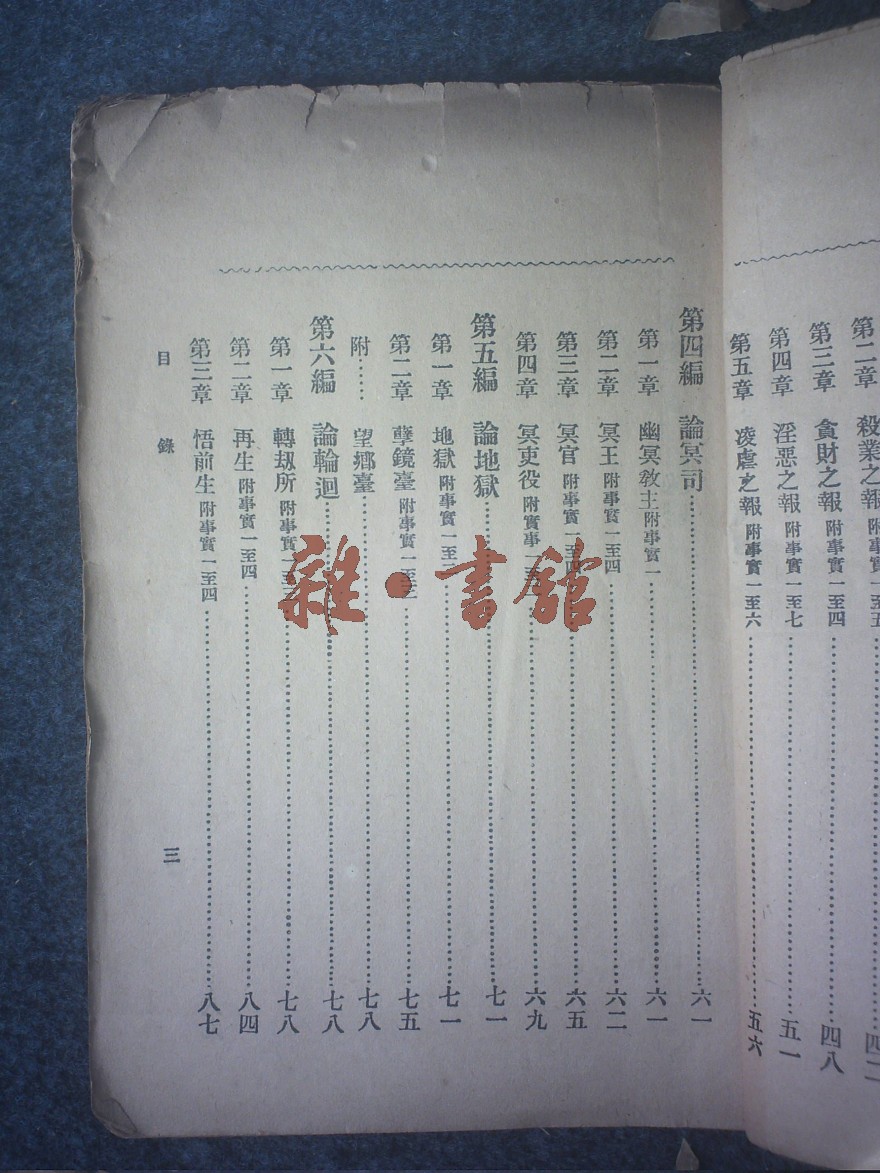 第二章 殺業之報附事實一至五……四二
第三章 貪財之報附事實一至四……四八
第四章 淫惡之報附事實一至七……五一
第五章 凌虐之報附事實一至六……五六
第四編 論冥司……六一
第一章 幽冥教主附事實一……六一
第二章 冥王附事實一至四……六二
第三章 冥官附事實一至四……六五
第四章 冥吏役附實事一至……六九
第五編 論地獄……七一
第一章 地獄附事實一至……七一
第二章 孽鏡臺附事實一至……七五
附…… 望鄉臺……七八
第六編 論輪迴……七八
第一章 轉刼所附事實一至……七八
第二章 再生附事實一至四……八四
第三章 悟前生附事實一至四……八七
目錄 三
雜·書館